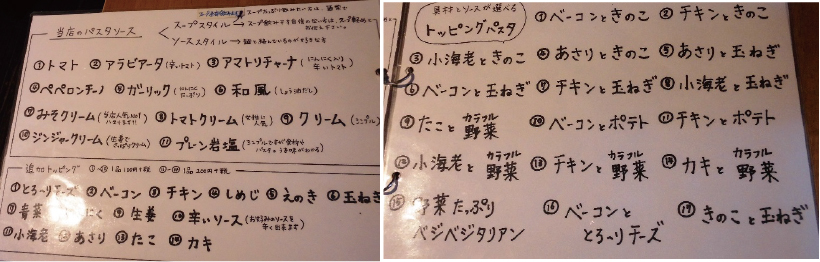 当店のパスタソース
スープスタイル→
ソーススタイル→麺と絡んでいるのがすきな方
①トマト ②アラビアータ(辛いトマト) ③アマトリチャーナ(にんにく入り 辛いトマト)
④ペペロンチーノ ⑤ガーリック ⑥和風(しょうゆだし)
⑦みそクリーム ⑧トマトクリーム(女性に人気) ⑨クリーム(シンプル)
⑩ジンジャークリーム ⑪プレーン岩塩
追加トッピング
①とろ〜りチーズ ②ベーコン ③チキン ④しめじ ⑤えのき ⑥玉ねぎ
⑦青菜 にく ⑨生姜 ⑩辛いソース(お好みのソースを辛く出来ます)
⑪小海老 ⑫あさり ⑬たこ ⑭カキ
具材とソースが選べる
トッピングパスタ
①ベーコンときのこ ②チキンときのこ
③小海老ときのこ ④あさりときのこ ⑤あさりと玉ねぎ
⑥ベーコンと玉ねぎ ⑦チキンと玉ねぎ ⑧小海老と玉ねぎ
⑨たことカラフル野菜 ⑩ベーコンとポテト ⑪チキンとポテト
⑫小海老とカラフル野菜 ⑬チキンとカラフル野菜 ⑭カキとカラフル野菜
⑮野菜たっぷり
ベジベジタリアン
⑯ベーコンと
とろ〜りチーズ
⑰きのこと玉ねぎ